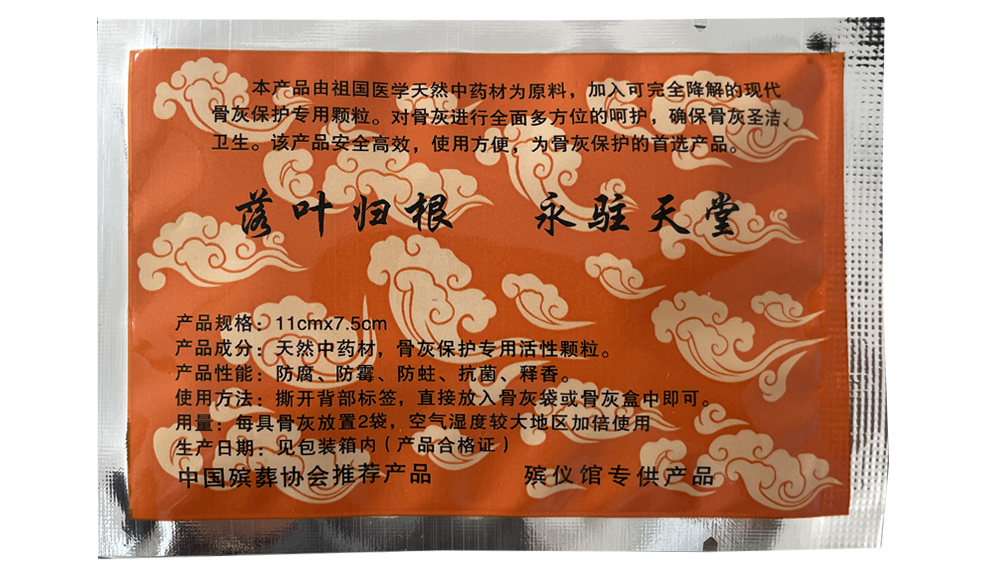 本产品由祖国医学天然中药材为原料，加入可完全降解的现代
骨灰保护专用颗粒。对骨灰进行全面多方位的呵护，确保骨灰圣洁、
卫生。该产品安全高效，使用方便，为骨灰保护的首选产品。
落叶归根 永驻天堂
产品规格：11cmx7.5cm
产品成分：天然中药材，骨灰保护专用活性颗粒。
产品性能：防腐、防霉、防蛀、抗菌、释香。
使用方法：撕开背部标签，直接放入骨灰袋或骨灰盒中即可。
用量：每具骨灰放置2袋，空气湿度较大地区加倍使用
生产日期：见包装箱内（产品合格证）
中国殡葬协会推荐产品 殡仪馆专供产品